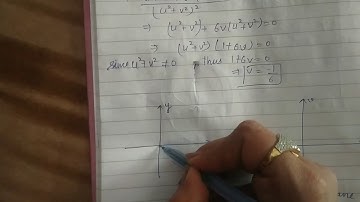 (u²+v²)²
⇒ (u²+v²)+ 6v(u²+v²)=0
⇒ (u²+v²)(1+6v)=0
Since u²+v² ≠0 Thus 1+6v=0
⇒ v = -1/6
y
v